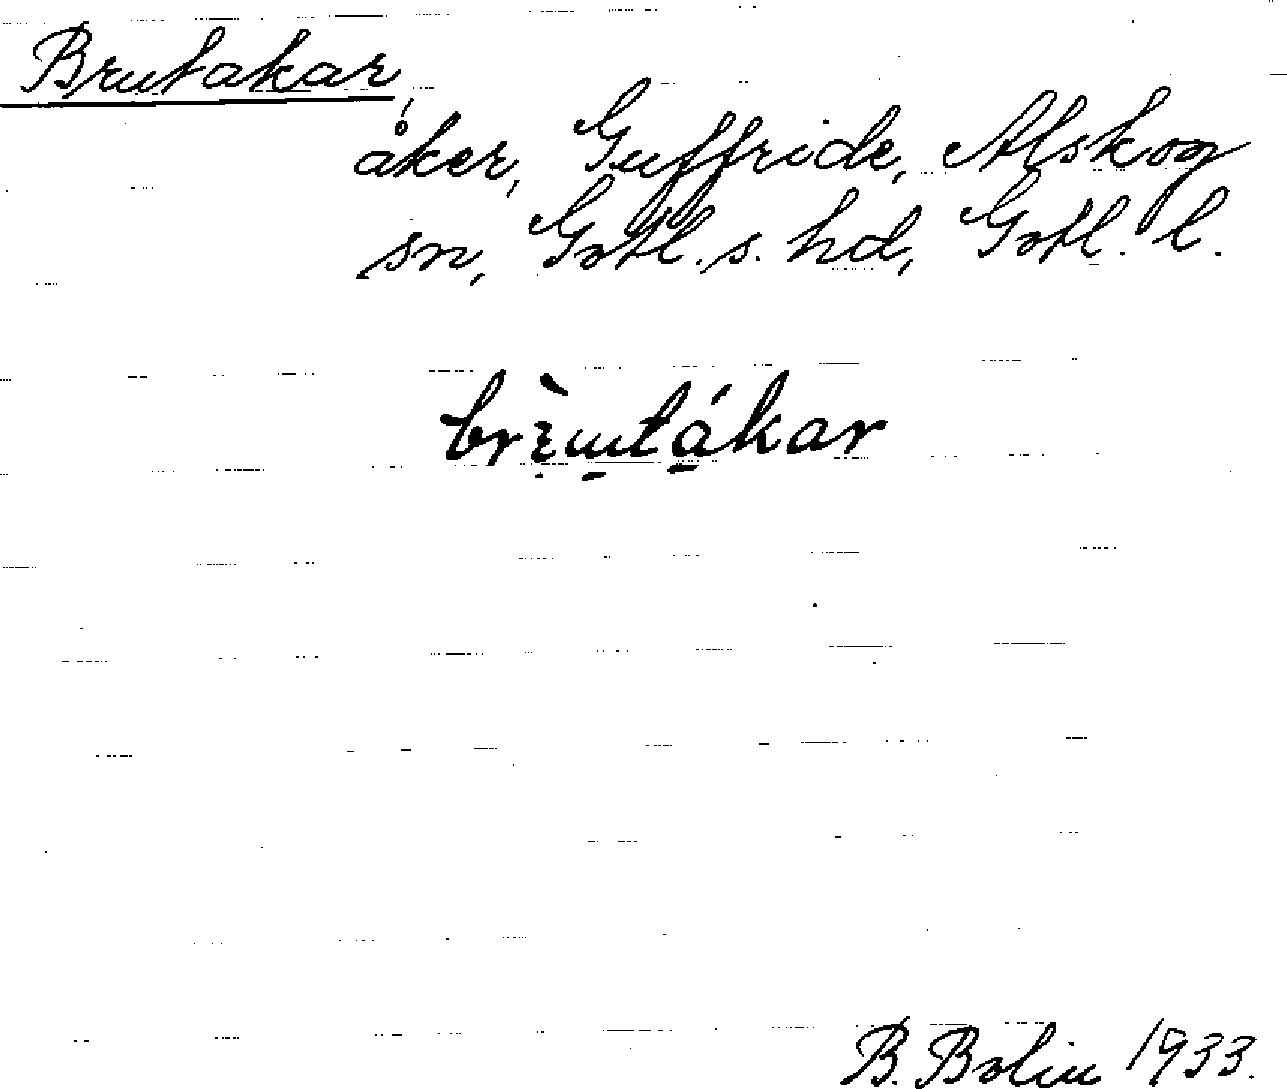 Brutakar,
åker, Guffride, Alskog
sn, Gotl. s. hd, Gotl. l.
B. Bolin 1933.